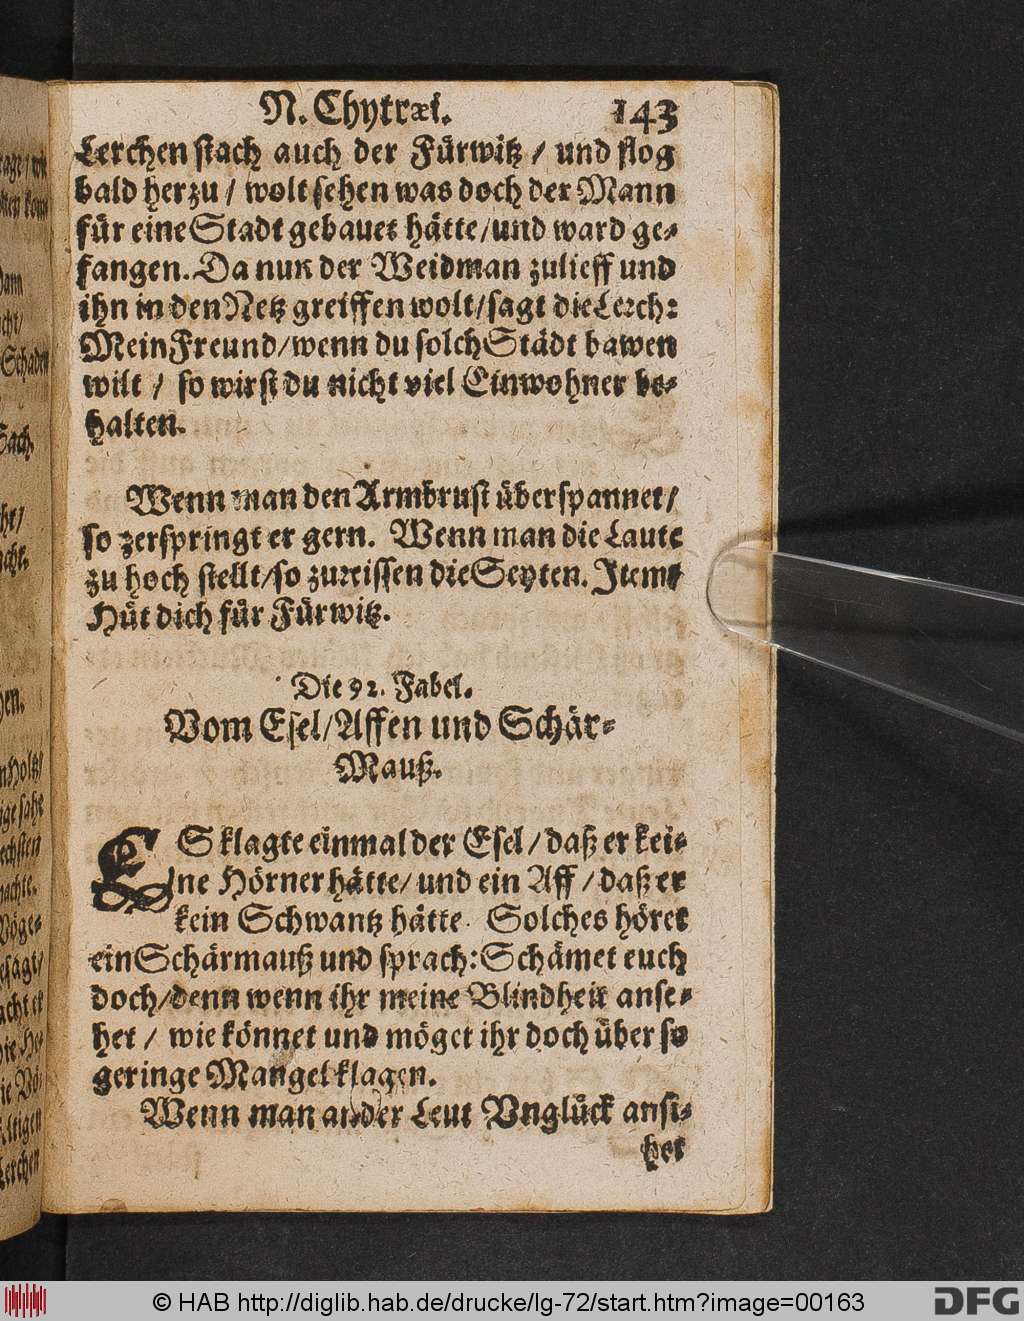 N. Chytræi. 143
Lerchen stach auch der Fürwitz / und flog
bald herzu / wolt sehen was doch der Mann
für eine Stadt gebauet hätte / und ward ge-
fangen. Da nun der Weidman zulieff und
ihn in den Netz greiffen wolt / sagt die Lerch:
Mein Freund / wenn du solch Städt bawen
wilt / so wirst du nicht viel Einwohner be-
halten.
Wenn man den Armbrust überspannet /
so zerspringt er gern. Wenn man die Laute
zu hoch stellt / so zureissen die Seyten. Item
Hüt dich für Fürwitz.
Die 92. Fabel.
Vom Esel / Affen und Schär-
Mauß.
ES klagte einmal der Esel / daß er kei-
ne Hörner hätte / und ein Aff / daß er
kein Schwantz hätte. Solches höret
ein Schärmauß und sprach: Schämet euch
doch / denn wenn ihr meine Blindheit anse-
het / wie könnet und möget ihr doch über so
geringe Mangel klagen.
Wenn man ander Leut Vnglück ansi-
het
© HAB http://diglib.hab.de/drucke/lg-72/start.htm?image=00163
DFG